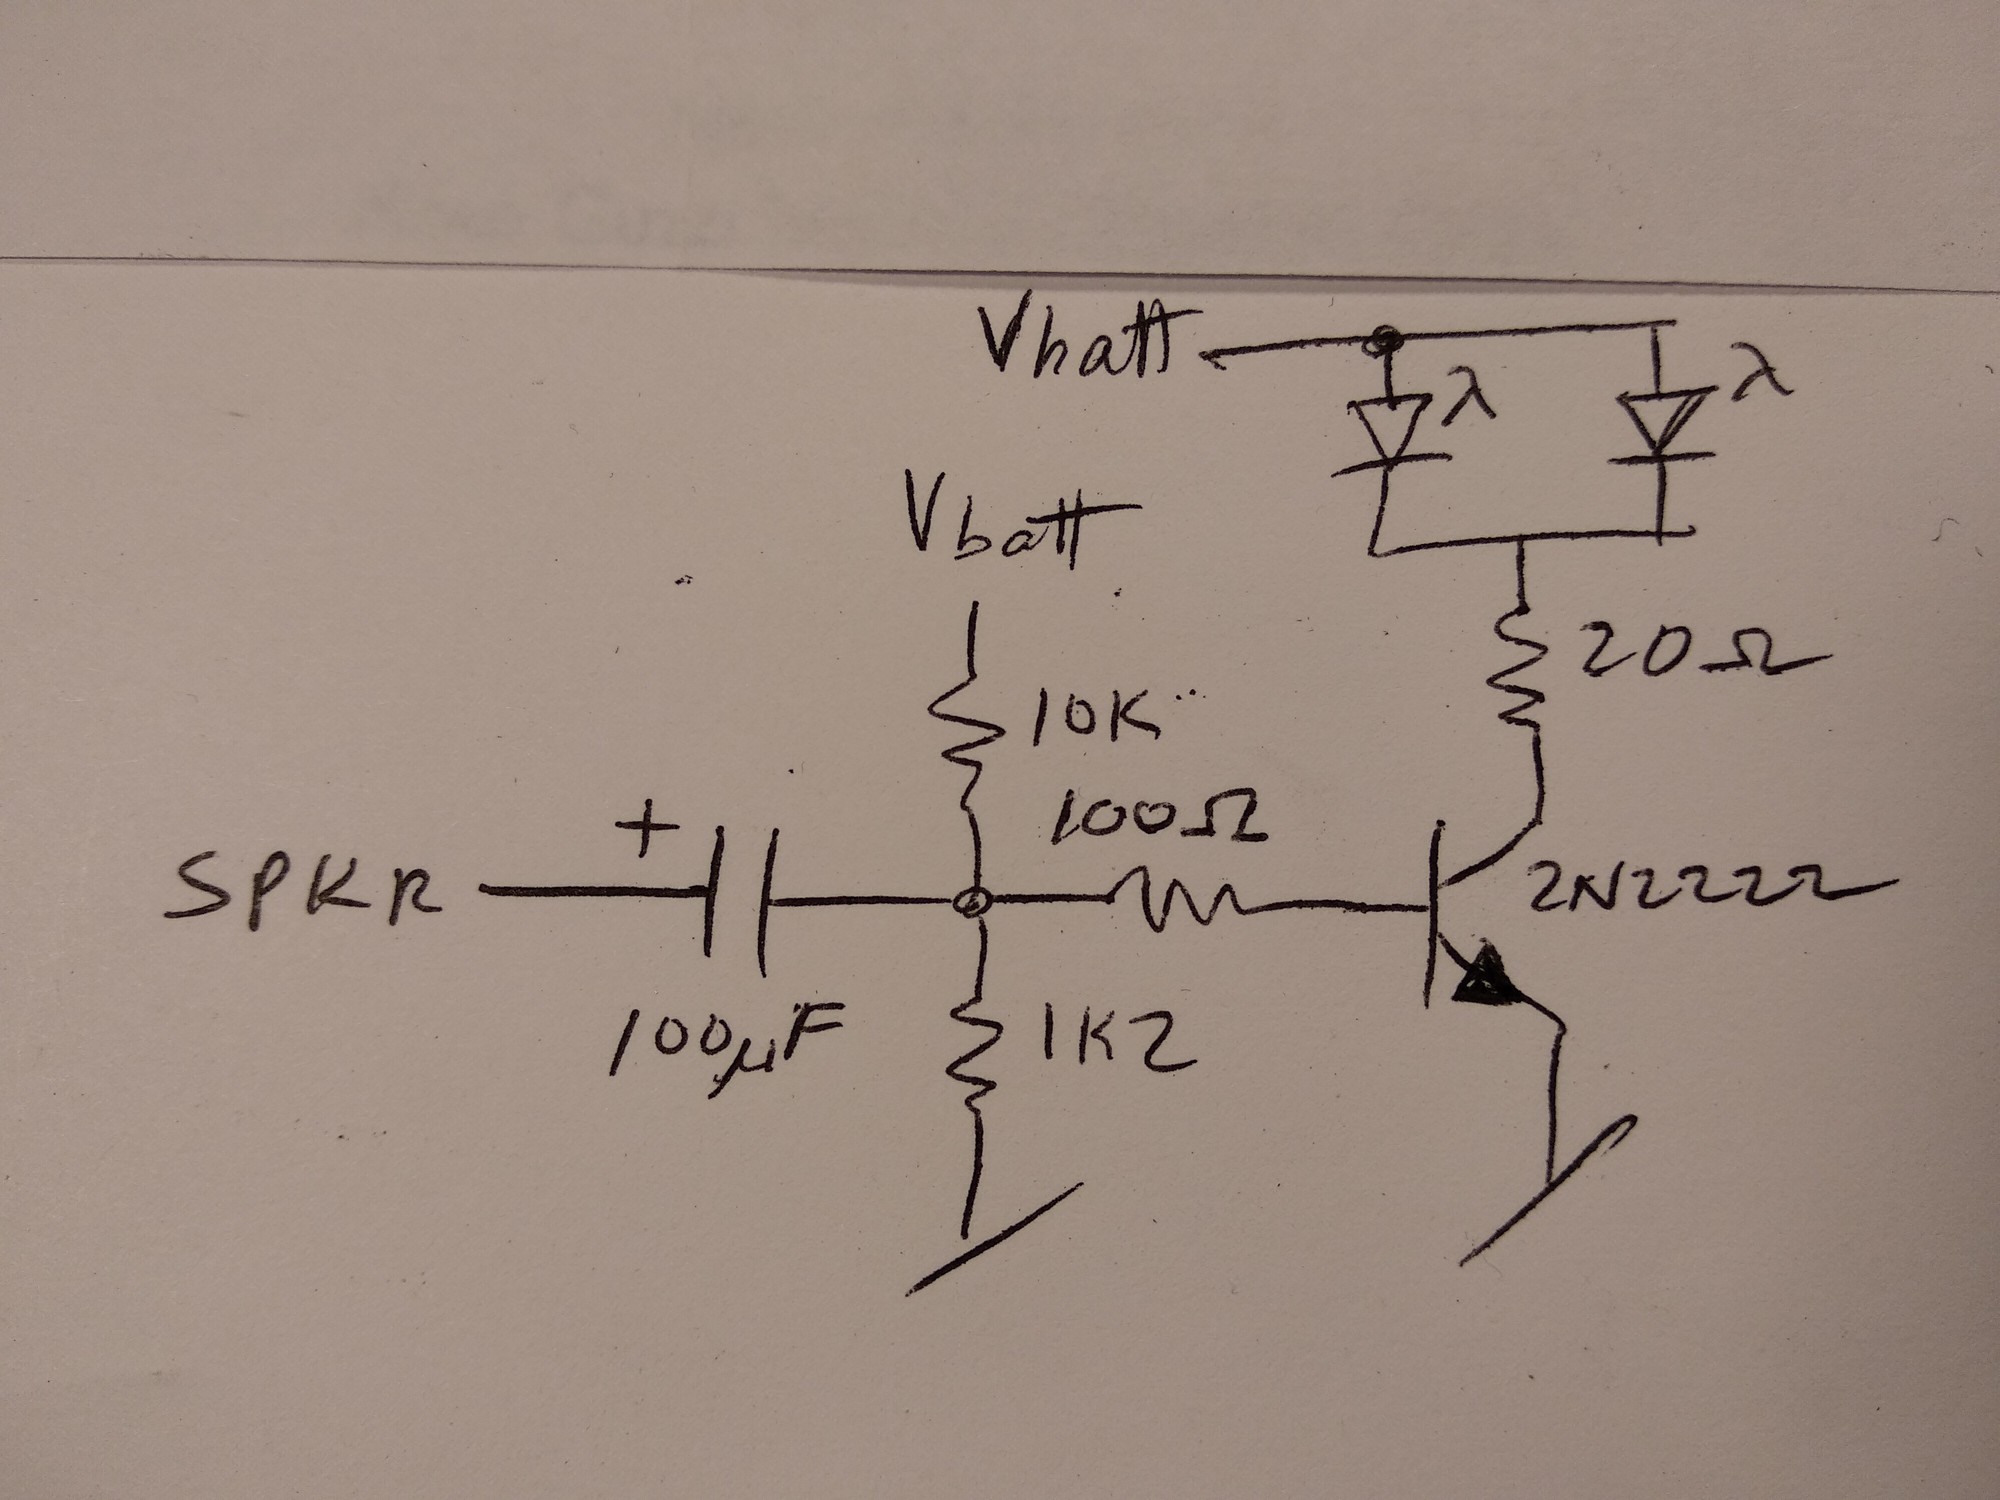 Vbatt
λ
λ
Vbatt
20Ω
10K
100Ω
+
SPKR
2N2222
100µF
1K2